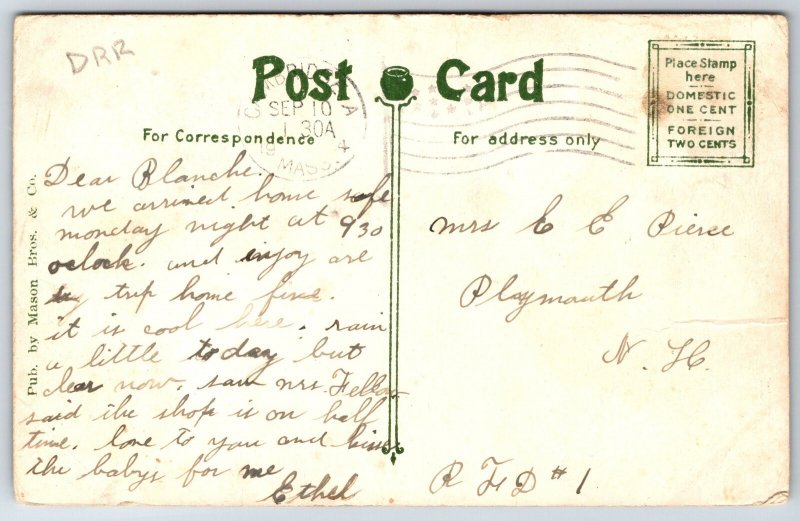 DRR
Post Card
Place Stamp
here
DOMESTIC
ONE CENT
FOREIGN
TWO CENTS
SEP 10
30A
MASS
For Correspondence
For address only
Pub. by Mason Bros. & Co.
Dear Blanche.
we arrived home safe
monday night at 930
oclock. and enjoy are
trip home fine.
it is cool here. rain
a little today but
clear now. saw mrs. Fellows
said the shop is on half
time. love to you and kiss
the babys for me
Ethel
Mrs E E Pierce
Playmouth
N. H.
R F D # 1